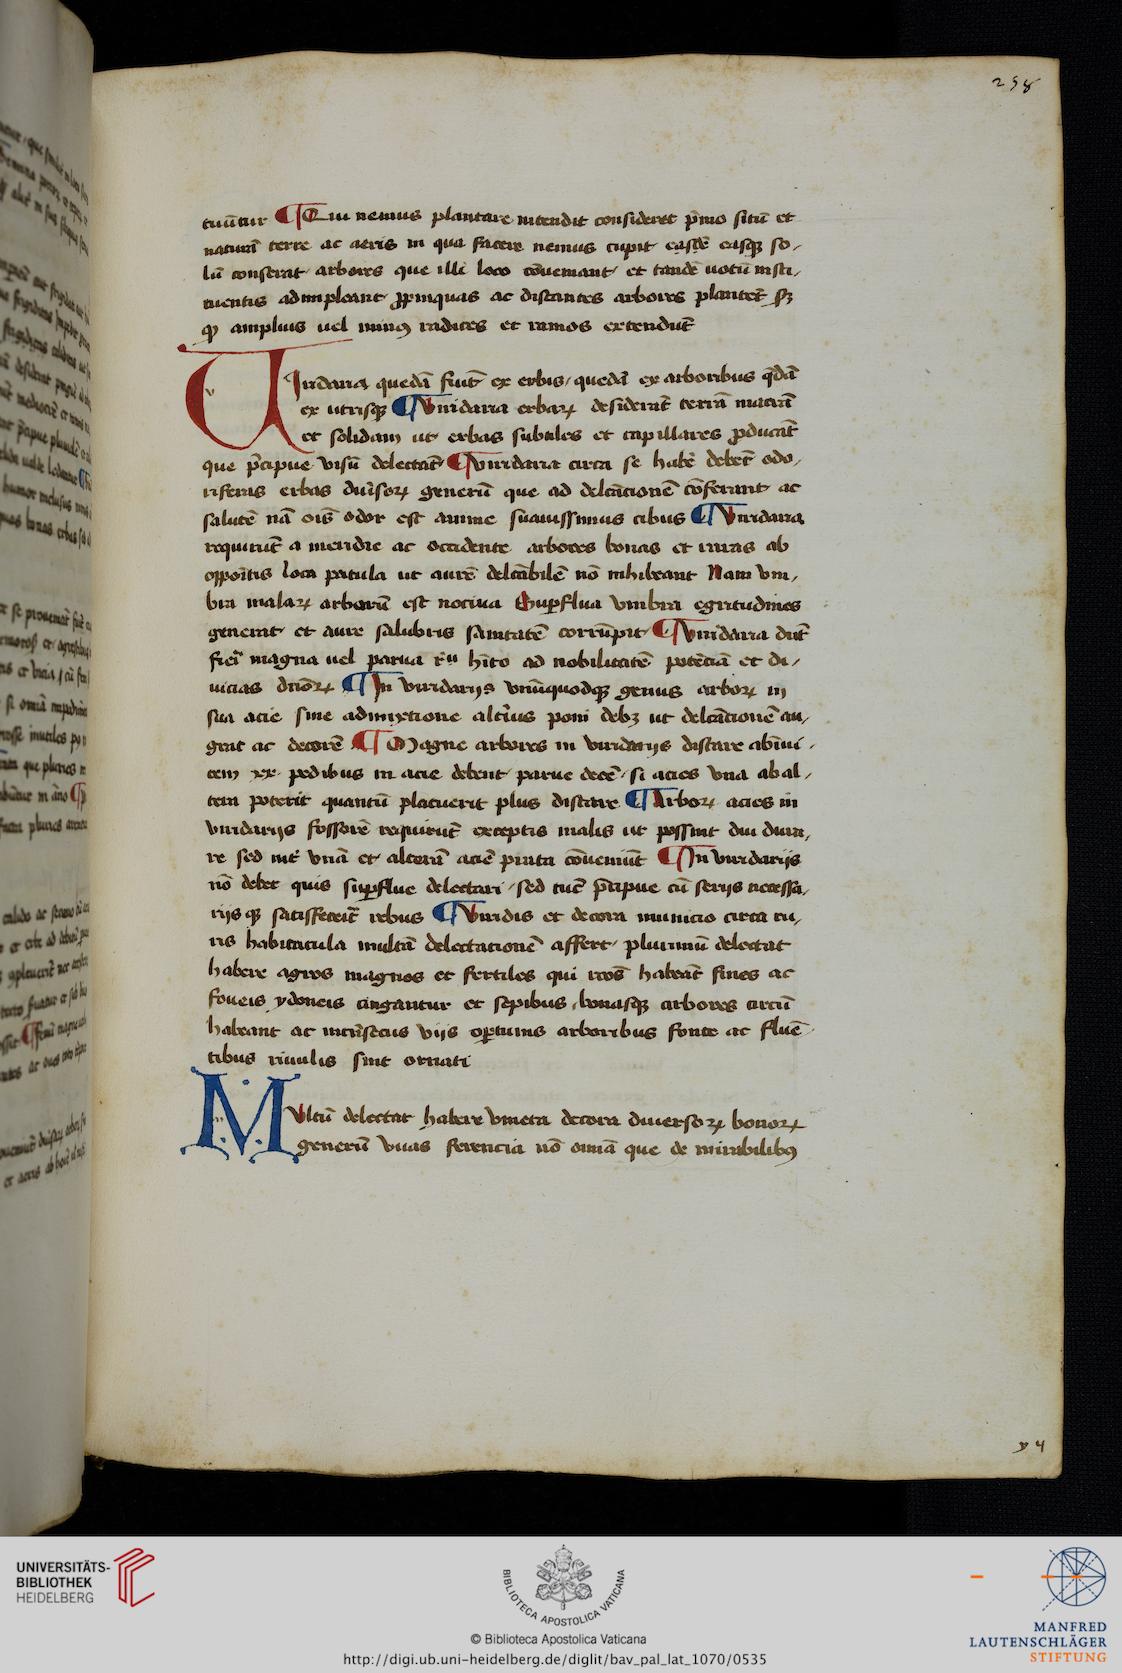 258
tuūtur ¶ Qui nemus plantare intendit consideret p̄mo sitū et
naturā terre ac aeris in qua facere nemus cupit easdē easqꝫ so-
lū conserat arbores que illi loco cōueniant et tandē uotū insti-
tuentis adimpleant ꝓpinquas ac distantes arbores plantet sꝫ
amplius uel minꝰ radices et ramos extendūt
Viridaria quedā fiūt ex erbis, quedā ex arboribus q̄dā
ex utrisqꝫ ¶ Viridaria erbaꝝ desiderāt terrā macrā
et solidam ut erbas subtiles et capillares ꝓducāt
que p̄cipue visū delectāt ¶ Viridaria circa se habē debēt odo-
riferas erbas diu̾soꝝ generū que ad delcātionē cōferant ac
salutē nā oīs odor est anime suauissimus cibus ¶ Viridaria
requirūt a meridie ac occidente arbores bonas et raras ab
oppoītis loca patula ut aurē delcābilē nō inhibeant Nam vm-
bra malaꝝ arborū est nociua Suꝑflua vmbra egritudines
generat et aure salubris sanitatē corrūpit ¶ Viridaria dn̄t
fieri magna uel parua hīto ad nobilitatē potēciā et di-
uicias dn̄oꝝ ¶ In viridarijs vnūquodqꝫ genus arboꝝ in
sua acie sine admixtione altīus poni debꝫ ut delcātionē au-
geat ac decorē ¶ Magne arbores in viridarijs distare abīui-
cem xx pedibus in acie debent parue decē si acies vna ab al-
tera poterit quantū placuerit plus distare ¶ Arboꝝ acies in
viridarijs fossorē requirūt exceptis malis ut possint diu dura-
re sed int̾ vnā et alterā aciē prata cōueniūt ¶ In viridarijs
nō debet quis suꝑflue delectari sed tūc p̄cipue cū serijs necessa-
rijsqꝫ satisfecerit rebus ¶ Viridis et decora municio circa ru-
ris habitacula multā delectationē affert, plurimū delectat
habere agros magnos et fertiles qui rc̄os habeāt fines ac
foueis ydoneis cingantur et sepibus, bonasqꝫ arbores circū
habeant ac int̄nsecus vijs oꝑtunis arboribus fonte ac fluē-
tibus riuulis sint ornati
Multū delectat habere vineta decora diuersoꝝ bonoꝝ
generū vuas ferencia nō omīā que de mirabilibꝰ
y 4
UNIVERSITÄTS-
BIBLIOTHEK
HEIDELBERG
BIBLIOTECA APOSTOLICA VATICANA
© Biblioteca Apostolica Vaticana
http://digi.ub.uni-heidelberg.de/diglit/bav_pal_lat_1070/0535
MANFRED
LAUTENSCHLÄGER
STIFTUNG